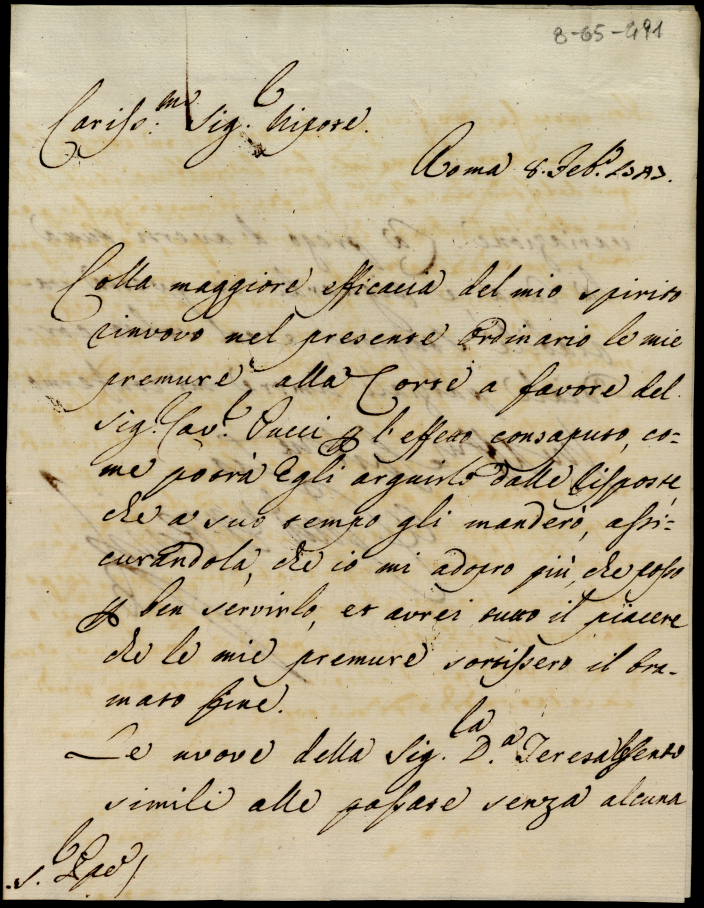 8-65-491
Cariss.mo Sig.r Nipote.
Roma 8. Feb.o
Colla maggiore efficacia del mio spirito
rinuovo nel presente Ordinario le mie
premure alla Corte a favore del
Sig.r Cav.r Pucci p l'effetto consaputo, co=
me potrà Egli arguirlo dalle risposte,
che a suo tempo gli manderò, assi=
curandola, che io mi adopro più che posso
p ben servirlo, et avrei tutto il piacere
che le mie premure sortissero il bra=
mato fine.
Le nuove della Sig.la D.a Teresa sento
simili alle passate senza alcuna